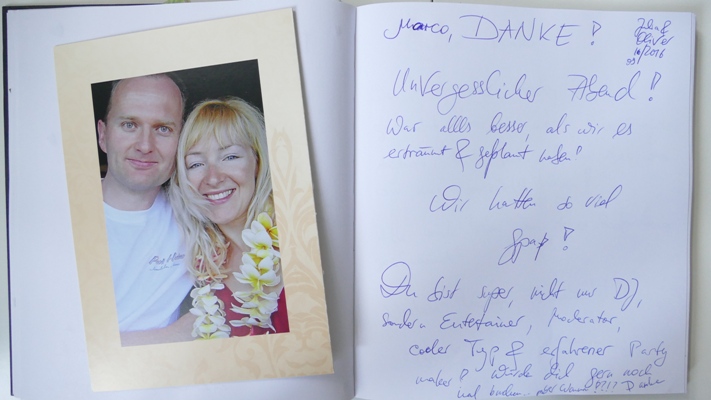 Marco, DANKE!
Oliver
Unvergesslicher Abend!
War alles besser, als wir es
erträumt & geplant haben!
Wir hatten so viel
Spaß!
Du bist super, nicht nur DJ,
sondern Entertainer, Moderator,
cooler Typ & erfahrener Party
maker! Würde dich gern noch
mal buchen